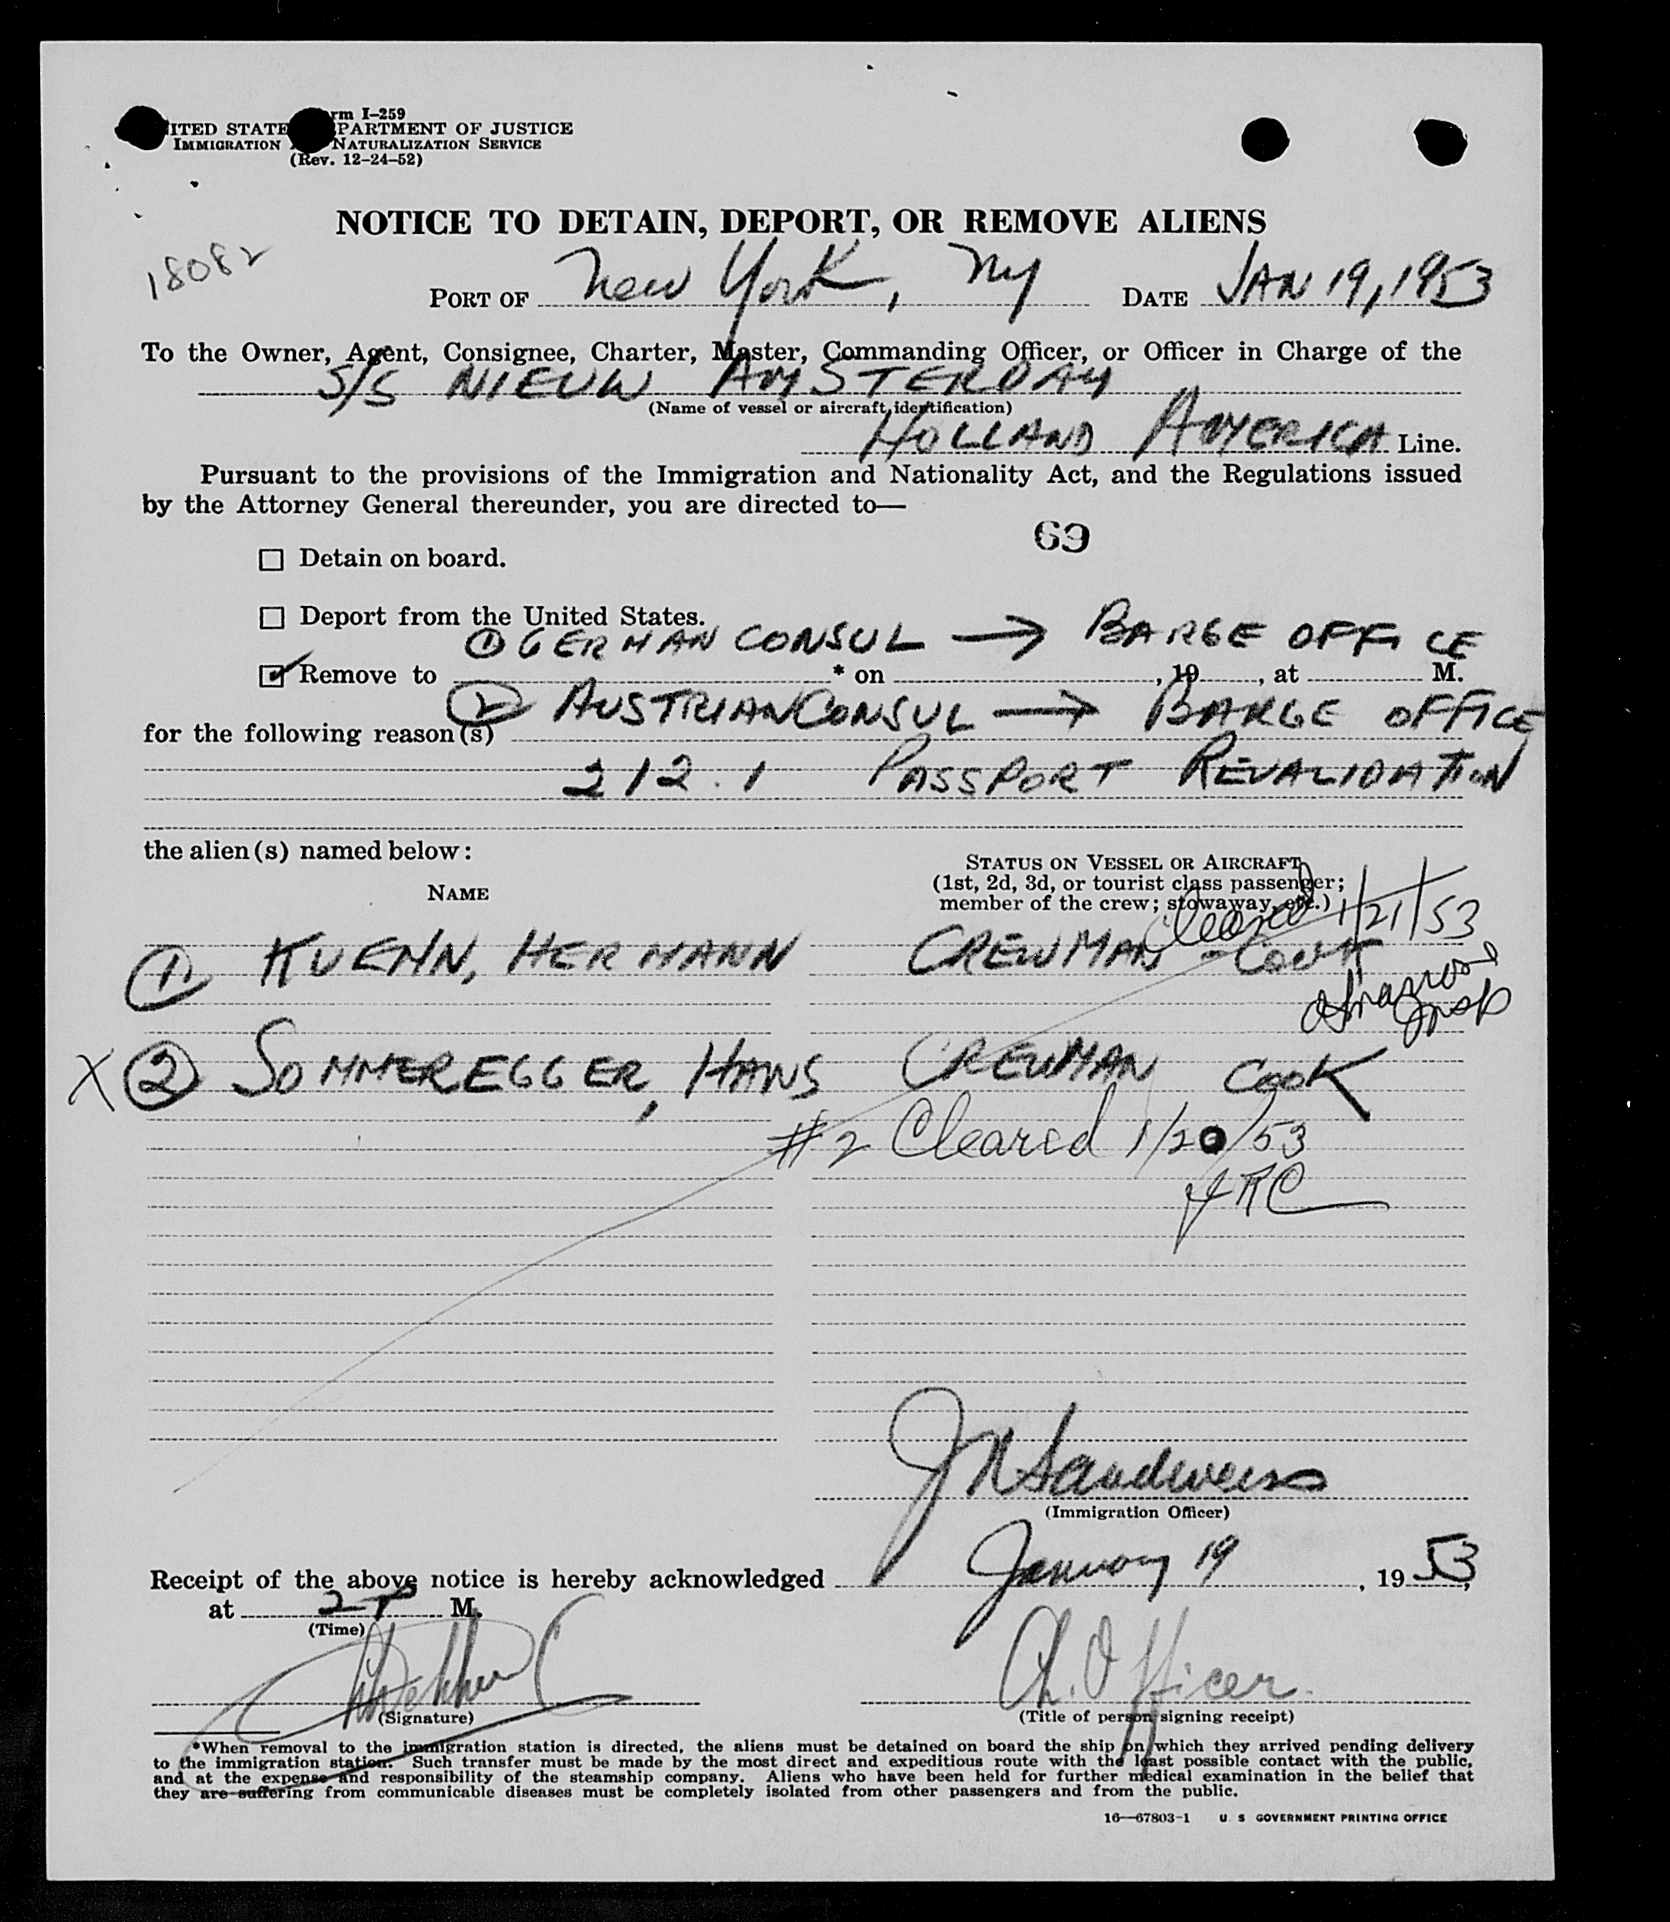 rm I-259
ITED STATE PARTMENT OF JUSTICE
IMMIGRATION NATURALIZATION SERVICE
(Rev. 12-24-52)
NOTICE TO DETAIN, DEPORT, OR REMOVE ALIENS
18082
PORT OF New York, NY DATE JAN 19, 1953
To the Owner, Agent, Consignee, Charter, Master, Commanding Officer, or Officer in Charge of the
S/S NIEUW AMSTERDAM
(Name of vessel or aircraft identification)
HOLLAND AMERICA Line.
Pursuant to the provisions of the Immigration and Nationality Act, and the Regulations issued
by the Attorney General thereunder, you are directed to—
69
☐ Detain on board.
☐ Deport from the United States.
① GERMAN CONSUL → BARGE OFFICE
☑ Remove to * on , 19 , at M.
② AUSTRIAN CONSUL → BARGE OFFICE
for the following reason(s)
212.1 PASSPORT REVALIDATION
the alien(s) named below:
NAME
STATUS ON VESSEL OR AIRCRAFT
(1st, 2d, 3d, or tourist class passenger;
member of the crew; stowaway, etc.)
Cleared 1/21/53
① KUEHN, HERMANN CREWMAN - COOK
Insp
X ② SOMMEREGGER, HANS CREWMAN COOK
#2 Cleared 1/20/53
JRC
J N Sandweiss
(Immigration Officer)
Receipt of the above notice is hereby acknowledged January 19, 1953,
at 2 P M.
(Time)
Ch. Officer.
(Signature)
(Title of person signing receipt)
*When removal to the immigration station is directed, the aliens must be detained on board the ship on which they arrived pending delivery
to the immigration station. Such transfer must be made by the most direct and expeditious route with the least possible contact with the public,
and at the expense and responsibility of the steamship company. Aliens who have been held for further medical examination in the belief that
they are suffering from communicable diseases must be completely isolated from other passengers and from the public.
16—67803-1 U. S GOVERNMENT PRINTING OFFICE